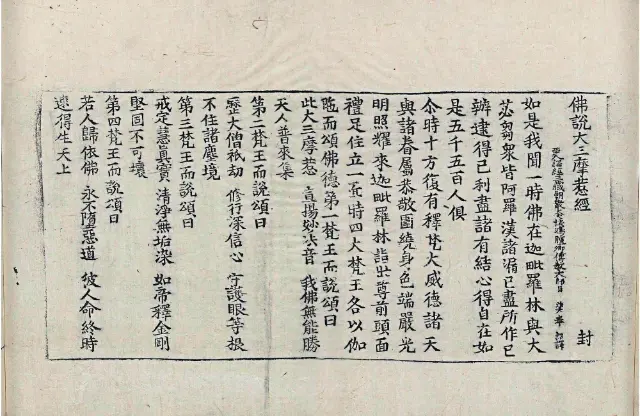 佛說大三摩惹經
封
如是我聞一時佛在迦毗羅林與大
苾芻衆皆阿羅漢諸漏已盡所作已
辦逮得己利盡諸有結心得自在如
是五千五百人俱
尒時十方復有釋梵大威德諸天
與諸眷屬恭敬圍繞身色端嚴光
明照耀來迦毗羅林詣世尊前頭面
禮足住立一面時四大梵王各以伽
陁而頌佛德第一梵王而說頌曰
此大三摩惹 宣揚妙法音 我佛無能勝
天人普來集
第二梵王而說頌曰
歷大僧祇劫 修行深信心 守護眼等根
不住諸塵境
第三梵王而說頌曰
戒定慧真實 清淨無垢染 如帝釋金剛
堅固不可壞
第四梵王而說頌曰
若人歸依佛 永不墮惡道 彼人命終時
速得生天上